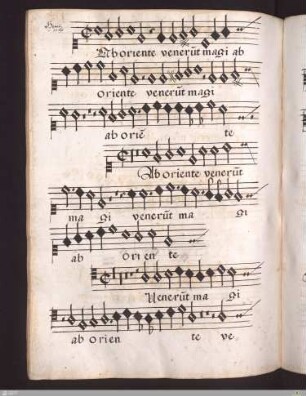 Ab oriente venerūt magi ab
oriente venerūt magi
ab oriē te
Ab oriente venerūt
ma gi venerūt ma gi
ab Ori en te
Venerūt ma gi
ab orien te ve